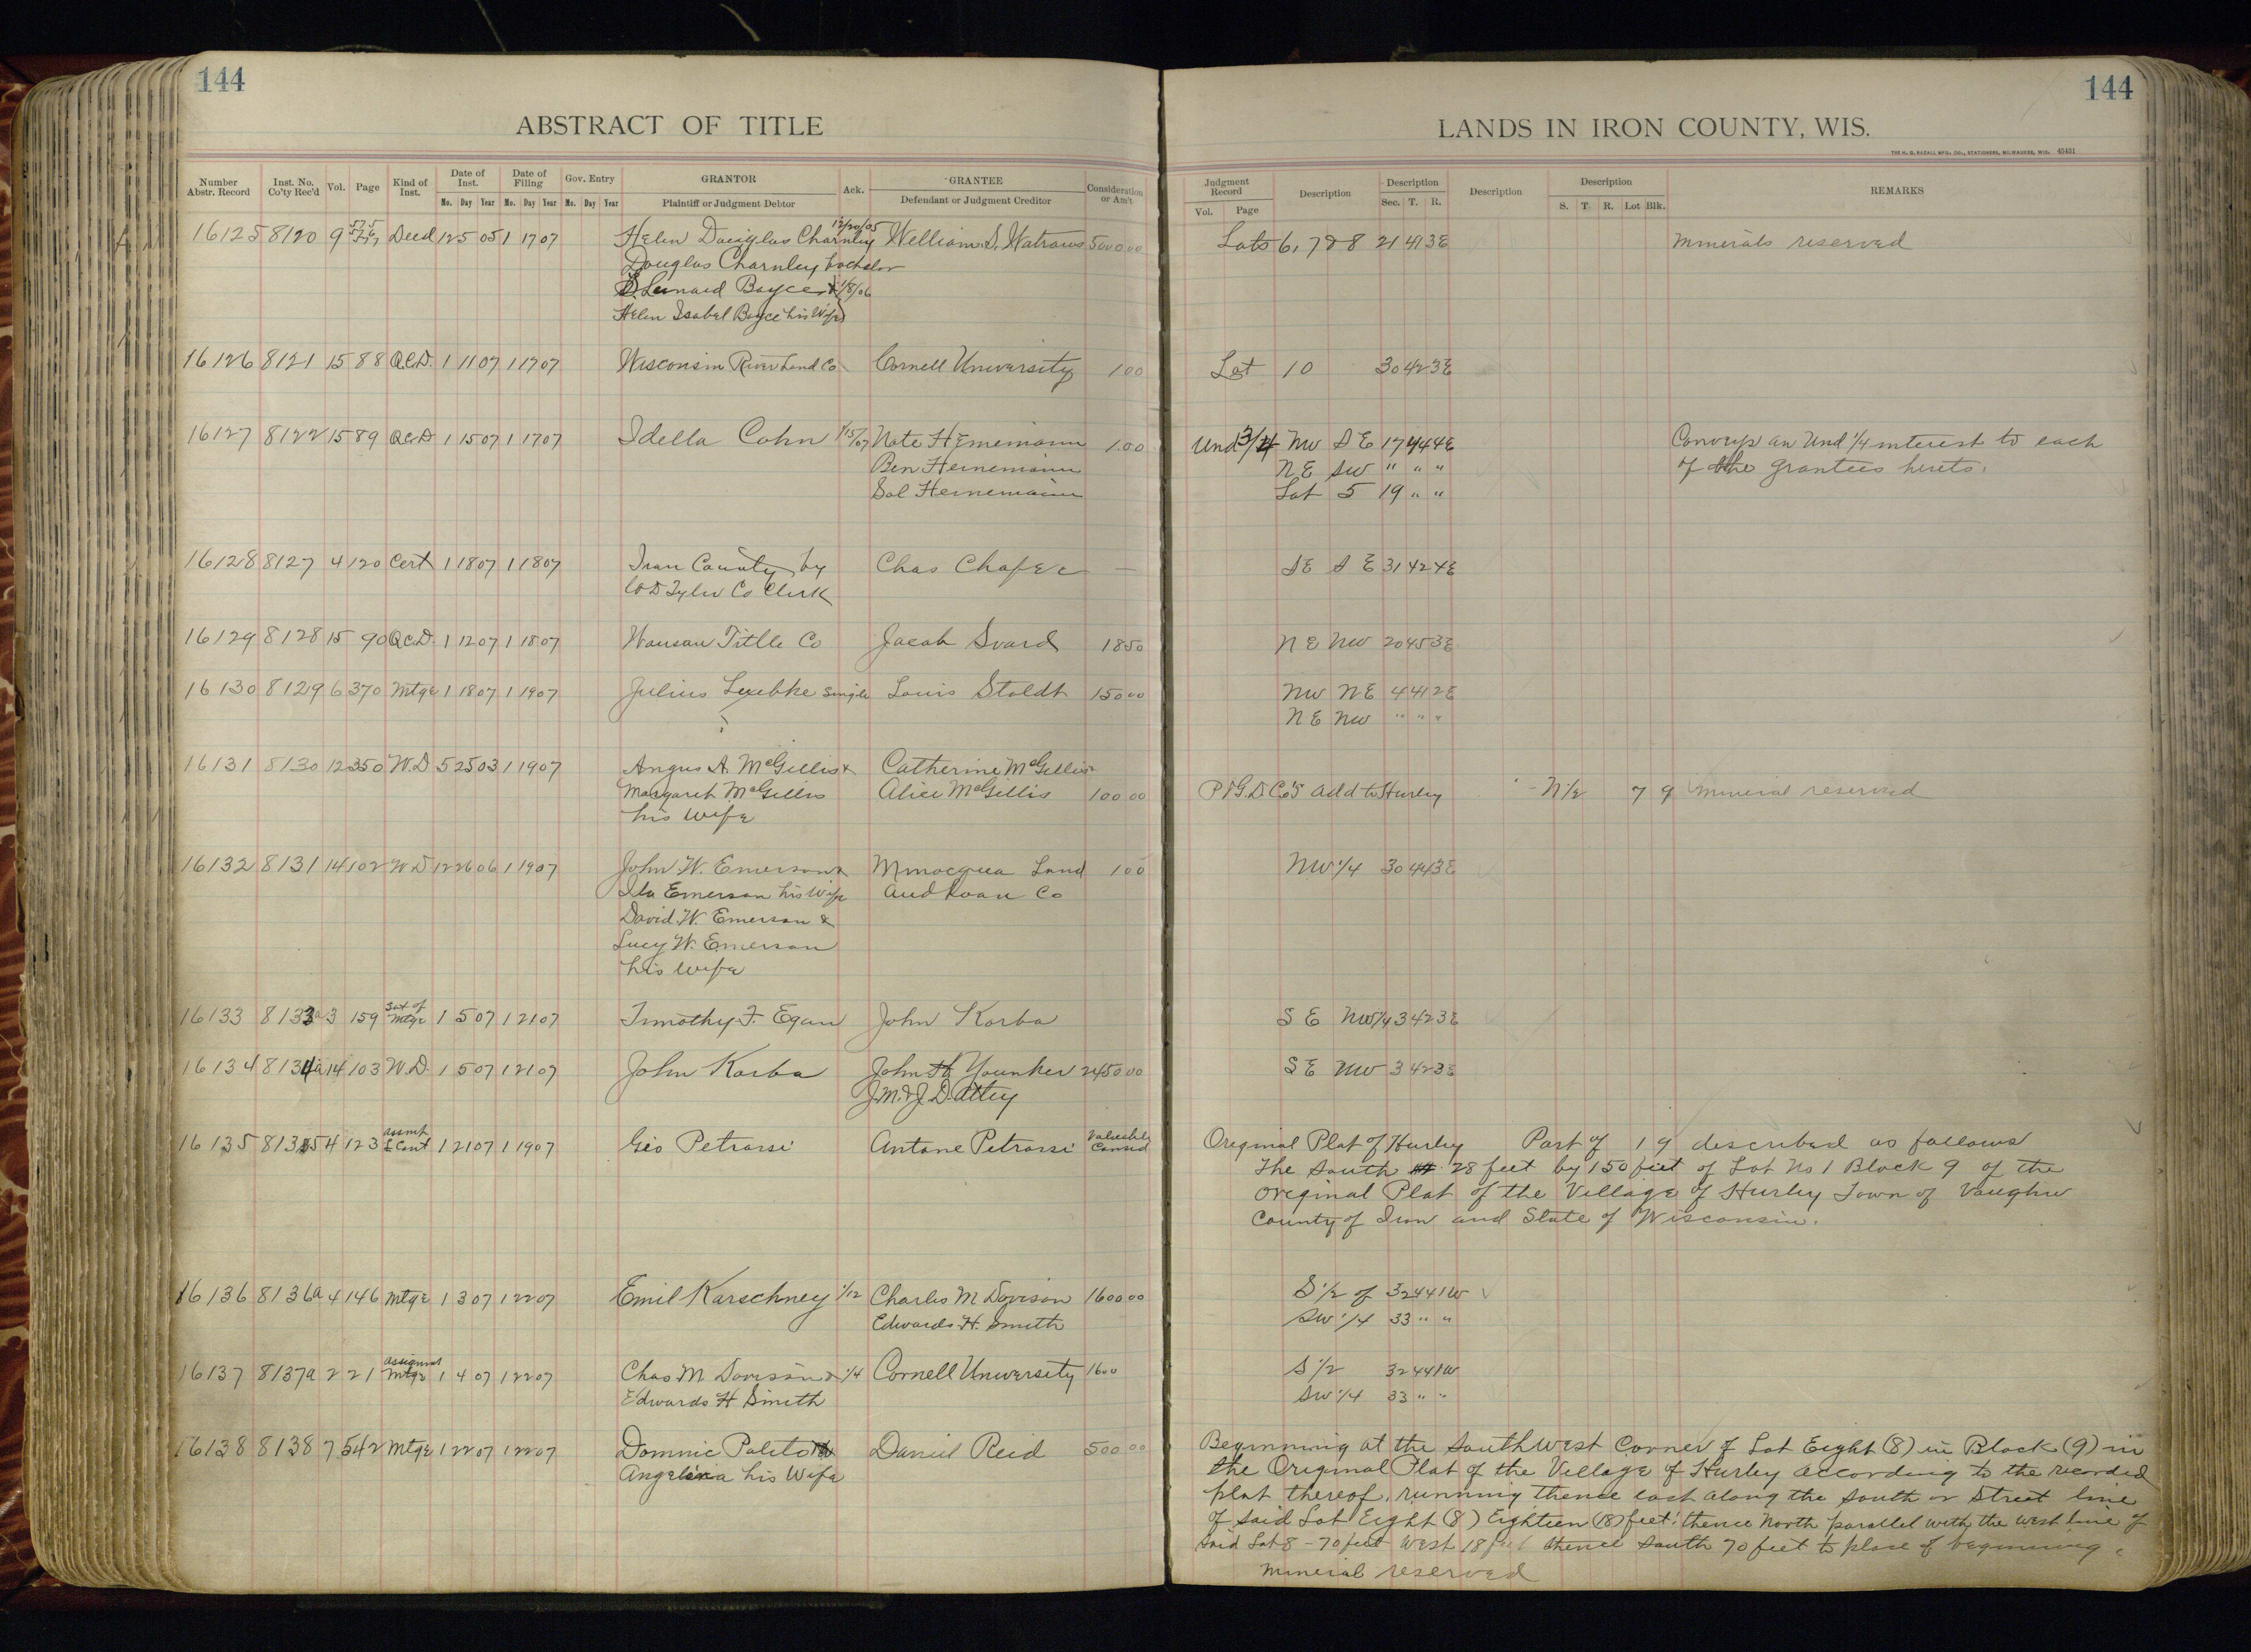 144
ABSTRACT OF TITLE
Number Abstr. Record | Inst. No. Co'ty Rec'd | Vol. | Page | Kind of Inst. | Date of Inst. Mo. Day Year | Date of Filing Mo. Day Year | Gov. Entry Mo. Day Year | GRANTOR Plaintiff or Judgment Debtor | Ack. | GRANTEE Defendant or Judgment Creditor | Consideration or Am't
144
LANDS IN IRON COUNTY, WIS.
THE H. G. RAZALL MFG. CO., STATIONERS, MILWAUKEE, WIS. 45431
Judgment Record Vol. Page | Description | Description Sec. T. R. | Description | Description S. T. R. Lot Blk. | REMARKS
16125 8120 9 Deed 12 5 05 1 17 07 Helen Douglas Charnley 12/20/05 William S. Watrous 5000.00 Lots 6, 7 & 8 21 41 3E Minerals reserved
Douglas Charnley bachelor
Leonard Boyce & 1/8/06
Helen Isabel Boyce his Wife
16126 8121 15 88 Q.C.D. 1 11 07 1 17 07 Wisconsin River Land Co Cornell University 1.00 Lot 10 30 42 3E
16127 8122 15 89 Q.C.D 1 15 07 1 17 07 Idella Cohn 1/15/07 Nate Heinemann 1.00 Und 3/4 NW S E 17 44 4E Conveys an Und 1/4 interest to each
Ben Heinemann N E SW " " " of the grantees hereto.
Sol Heinemann Lot 5 19 " "
16128 8127 4 120 Cert 1 18 07 1 18 07 Iron County by Chas Chafee — S E S E 31 42 4E
W D Tyler Co Clerk
16129 8128 15 90 Q.C.D. 1 12 07 1 18 07 Wausau Title Co Jacob Svard 18 50 N E NW 20 45 3E
16130 8129 6 370 Mtge 1 18 07 1 19 07 Julius Luebke single Louis Stoldt 150 00 NW N E 4 41 2E
N E NW " " "
16131 8130 12 350 W.D 5 25 03 1 19 07 Angus A. McGillis & Catherine McGillis
Margaret McGillis Alice McGillis 100 00 P & G. D. Co's Add to Hurley N 1/2 7 9 Mineral reserved
his wife
16132 8131 14 102 W D 12 26 06 1 19 07 John W. Emerson & Minocqua Land 1 00 NW 1/4 30 44 3E
Ida Emerson his Wife and Loan Co
David W. Emerson &
Lucy W. Emerson
his wife
16133 8133a 3 159 Sat of Mtge 1 5 07 1 21 07 Timothy F. Egan John Korba S E NW 1/4 3 42 3E
16134 8134a 14 103 W.D. 1 5 07 1 21 07 John Korba John Younker 2450 00 S E NW 3 42 3E
J.M. & J. D.
16135 8135 4 123 Assmt L Cont 1 21 07 1 19 07 Geo Petrossi Antone Petrossi Valuable Consid Original Plat of Hurley Part of 1 9 described as follows
The South 28 feet by 150 feet of Lot No 1 Block 9 of the
original Plat of the Village of Hurley Town of Vaughn
County of Iron and State of Wisconsin.
16136 8136a 4 146 Mtge 1 3 07 1 22 07 Emil Karschney 1/12 Charles M Davison 1600 00 S 1/2 of 32 44 1W
Edwards H. Smith SW 1/4 33 " "
16137 8137a 2 21 Assignmt Mtge 1 4 07 1 22 07 Chas M Davison & 1/4 Cornell University 1600 S 1/2 32 44 1W
Edwards H Smith SW 1/4 33 " "
16138 8138 7 542 Mtge 1 22 07 1 22 07 Domnic Daniel Reid 500 00 Beginning at the Southwest Corner of Lot Eight (8) in Block (9) in
his Wife the Original Plat of the Village of Hurley according to the recorded
plat thereof, running thence east along the South or Street line
of said Lot Eight (8) Eighteen (18) feet; thence North parallel with the west line of
said Lot 8 - 70 feet West 18 feet thence South 70 feet to place of beginning.
Mineral reserved